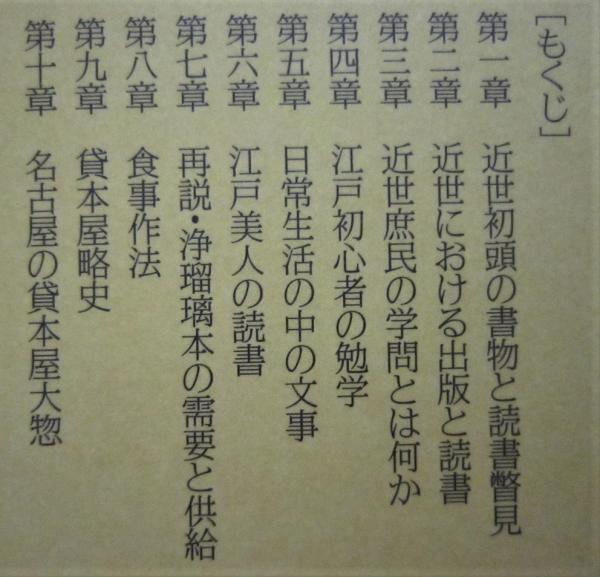 ［もくじ］
第一章　近世初頭の書物と読書瞥見
第二章　近世における出版と読書
第三章　近世庶民の学問とは何か
第四章　江戸初心者の勉学
第五章　日常生活の中の文事
第六章　江戸美人の読書
第七章　再説・浄瑠璃本の需要と供給
第八章　食事作法
第九章　貸本屋略史
第十章　名古屋の貸本屋大惣